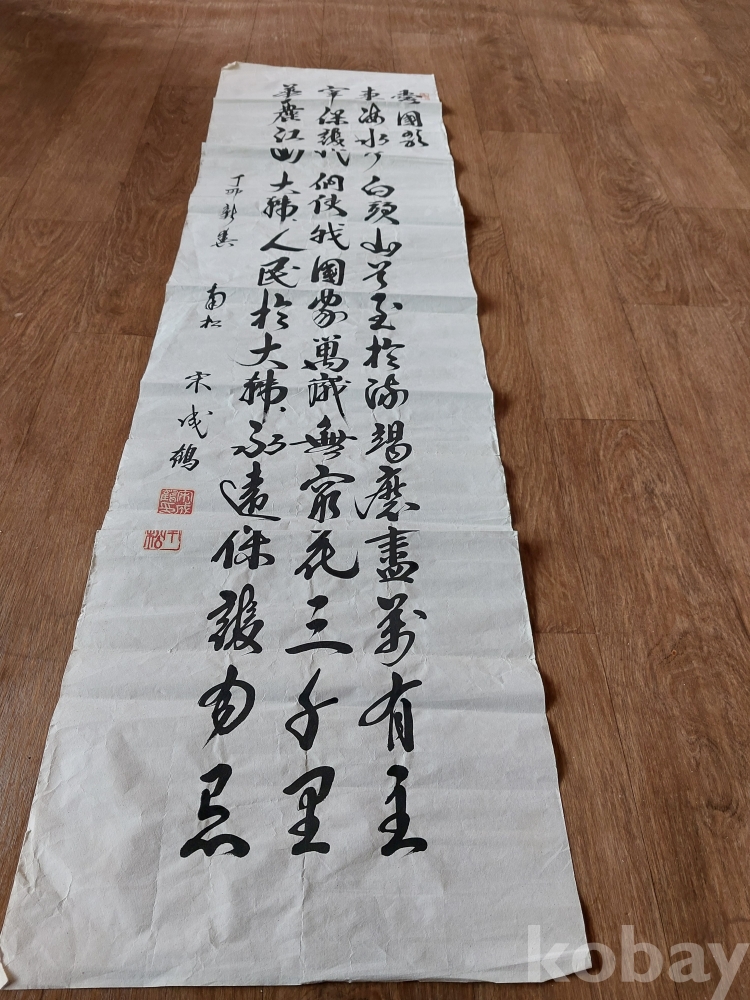 愛國歌
東海水 白頭山 至於 竭磨盡萬有主
宰保護我們使我國家萬歲無窮花三千里
華麗江山大韓人民於大韓永遠保護勿忘
丁卯新春
南松
宋成鶴
宋成鶴印
kobay